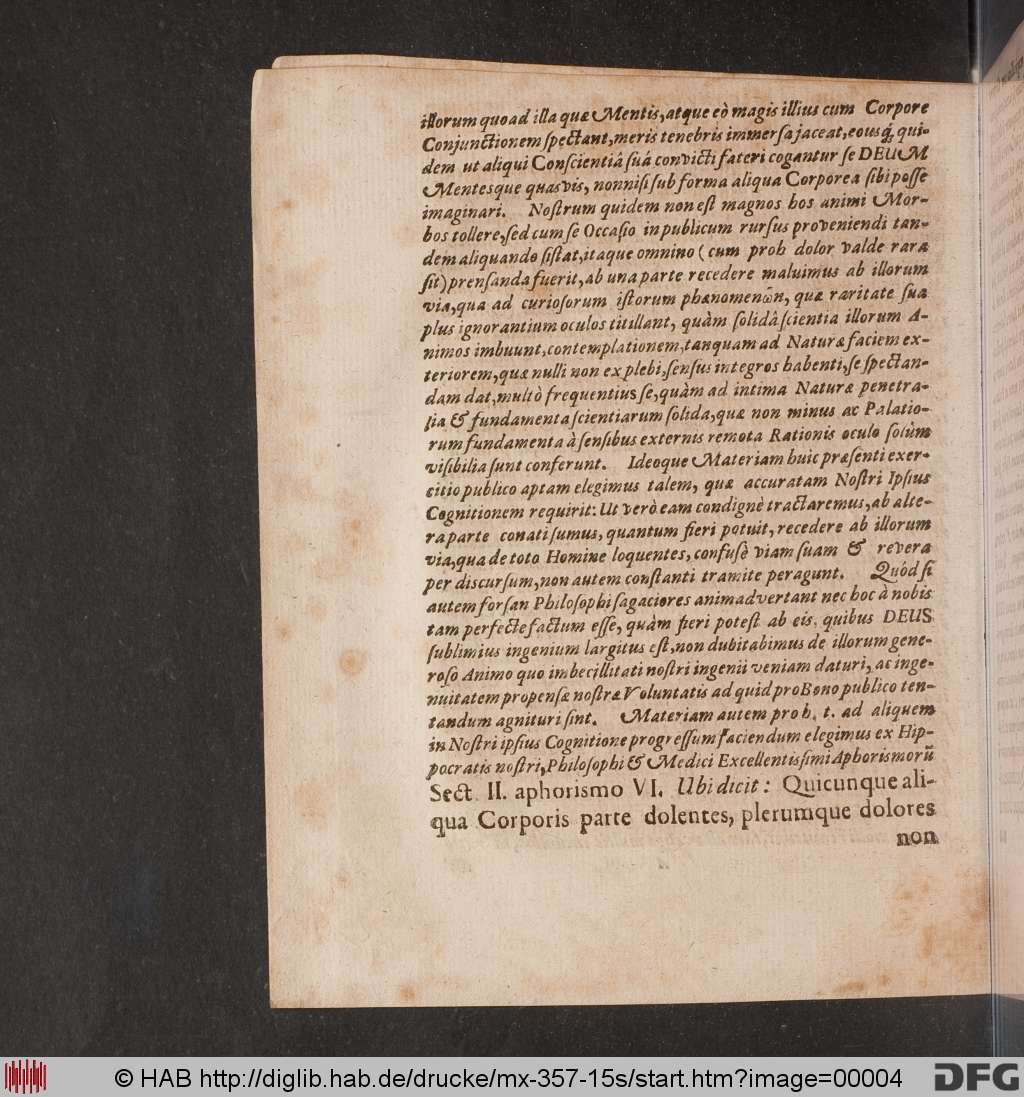 illorum quoad illa quæ Mentis, atque eò magis illius cum Corpore
Conjunctionem spectant, meris tenebris immersa jaceat, eousq́; qui-
dem ut aliqui Conscientiâ suâ convicti fateri cogantur se DEUM
Mentesque quasvis, nonnisi sub forma aliqua Corporea sibi posse
imaginari. Nostrum quidem non est magnos hos animi Mor-
bos tollere, sed cum se Occasio in publicum rursus proveniendi tan-
dem aliquando sistat, itaque omnino (cum proh dolor valde rara
sit) prensanda fuerit, ab una parte recedere maluimus ab illorum
via, qua ad curiosorum istorum phænomenῶn, quæ raritate sua
plus ignorantium oculos titillant, quàm solidâ scientia illorum A-
nimos imbuunt, contemplationem, tanquam ad Naturæ faciem ex-
teriorem, quæ nulli non ex plebi, sensus integros habenti, se spectan-
dam dat, multò frequentius se, quàm ad intima Naturæ penetra-
lia & fundamenta scientiarum solida, quæ non minus ac Palatio-
rum fundamenta à sensibus externis remota Rationis oculo solùm
visibilia sunt conferunt. Ideoque Materiam huic præsenti exer-
citio publico aptam elegimus talem, quæ accuratam Nostri Ipsius
Cognitionem requirit: Ut verò eam condignè tractaremus, ab alte-
ra parte conati sumus, quantum fieri potuit, recedere ab illorum
via, qua de toto Homine loquentes, confusè viam suam & revera
per discursum, non autem constanti tramite peragunt. Quód si
autem forsan Philosophi sagaciores animadvertant nec hoc à nobis
tam perfecte factum esse, quàm fieri potest ab eis, quibus DEUS
sublimius ingenium largitus est, non dubitabimus de illorum gene-
roso Animo quo imbecillitati nostri ingenii veniam daturi, ac inge-
nuitatem propensæ nostræ Voluntatis ad quid pro Bono publico ten-
tandum agnituri sint. Materiam autem pro h. t. ad aliquem
in Nostri ipsius Cognitione progressum faciendum elegimus ex Hip-
pocratis nostri, Philosophi & Medici Excellentissimi Aphorismorũ
Sect. II. aphorismo VI. Ubi dicit: Quicunque ali-
qua Corporis parte dolentes, plerumque dolores
non
© HAB http://diglib.hab.de/drucke/mx-357-15s/start.htm?image=00004
DFG